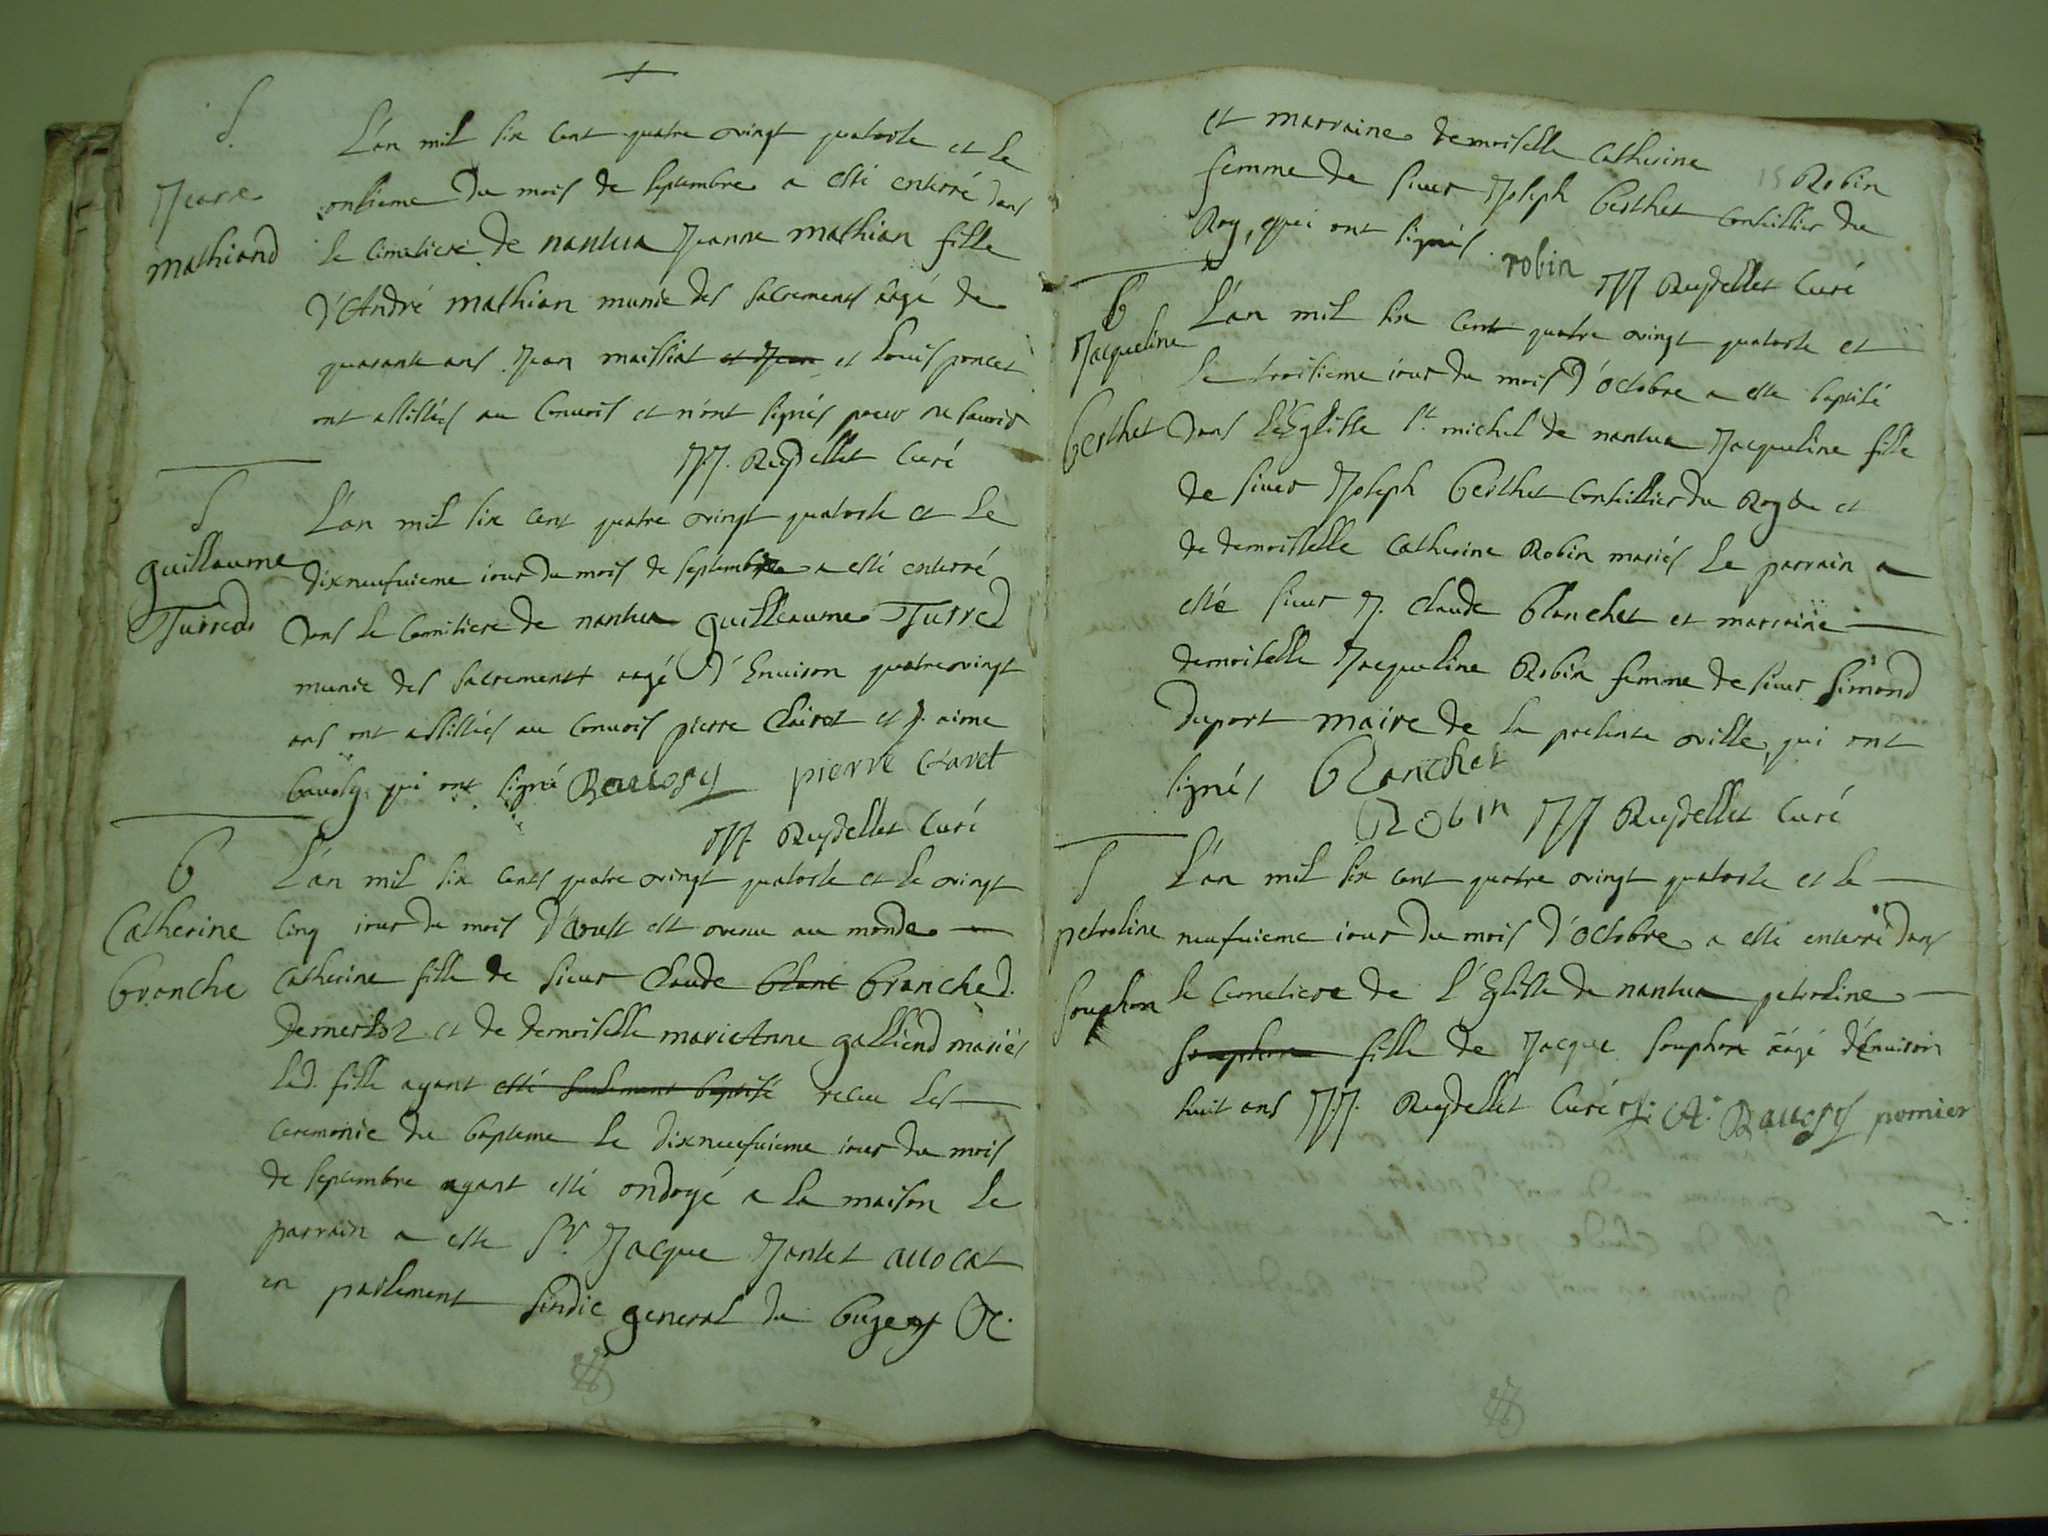 S.
Jeanne
Mathiand
L'an mil six cent quatre vingt quatorse et le
onsieme du mois de septembre a esté enterré dans
le cimetiere de nantua Jeanne mathian fille
d'André mathian munie des sacrements aagé de
quarante ans Jean maissiat et Jean et Louis poncet
ont assistés au convois et n'ont signés pour ne sauoir
JJ. Ruydellet Curé
S
guillaume
Turred
L'an mil six cent quatre vingt quatorse et le
dixneufuieme iour du mois de septembre a esté enterré
dans le Cemitiere de nantua guilleaume Turred
munie des sacrements aagé d'Enuiron quatrevingt
ans ont assistés au conuois pierre Clairet et j. aime
bauosy qui ont signé Bauosy pierre Claret
JJ. Ruydellet Curé
b
Catherine
branche
L'an mil six cents quatre vingt quatorse et le vingt
Cinq iour du mois d'Aoust est venue au monde
Catherine fille de sieur Claude blanc branche d.
demerloz et de demoiselle marieAnne galliend mariés
lad. fille ayant esté seulement baptisé recue les
Ceremonie du bapteme le dixneufuieme iour du mois
de septembre ayant esté ondoyé a la maison le
parrain a este Sr. Jacque Jantet auocat
en parlement sindic general du bugeys &c.
et marraine demoiselle Catherine Robin
femme de sieur Joseph berthet Conseillier du
Roy, qui ont signés. robin JJ Ruydellet Curé
b
Jacqueline
berthet
L'an mil six cent quatre vingt quatorse et
le troisieme iour du mois d'octobre a este baptisé
dans l'Eglisse St. michel de nantua Jacqueline fille
de sieur Joseph berthet Conseillier du Roy et
de demoisselle Catherine Robin mariés le parrain a
esté sieur J. Claude blanchet et marraine
demoiselle Jacqueline Robin femme de sieur simond
duport maire de la presente ville, qui ont
signés Blanchet
Robin JJ Ruydellet Curé
S
petroline
souphon
L'an mil six cent quatre vingt quatorse et le
neufuieme iour du mois d'octobre a esté enterré dans
le Cemetiere de l'Eglisse de nantua petroline
souphon fille de Jacque souphon aagé d'enuiron
huit ans JJ. Ruydellet Curé A. Bauosy pornier